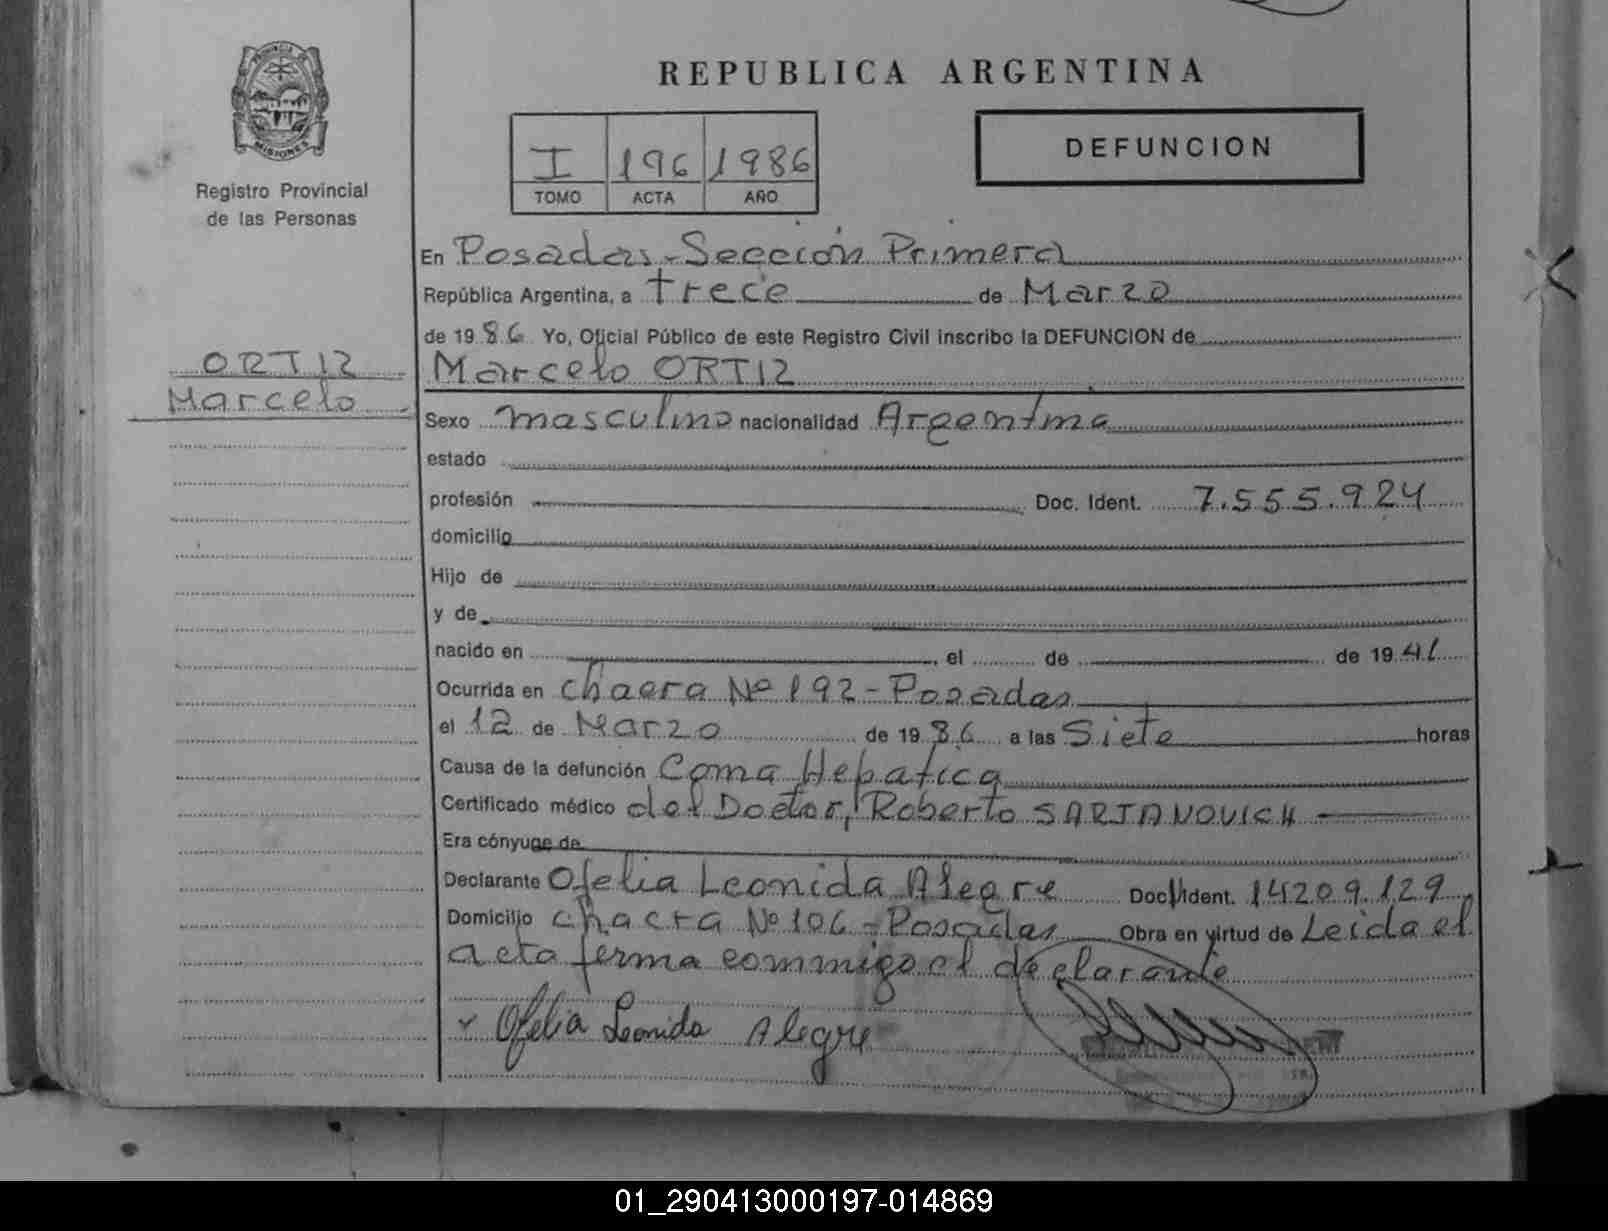 REPUBLICA ARGENTINA
PROVINCIA
MISIONES
Registro Provincial
de las Personas
I 196 1986
TOMO ACTA AÑO
DEFUNCION
ORTIZ
Marcelo
En Posadas-Sección Primera
República Argentina, a trece de Marzo
de 19 86 Yo, Oficial Público de este Registro Civil inscribo la DEFUNCION de
Marcelo ORTIZ
Sexo masculino nacionalidad Argentina
estado
profesión Doc. Ident. 7.555.924
domicilio
Hijo de
y de
nacido en , el de de 19 41
Ocurrida en chacra Nº 192-Posadas
el 12 de Marzo de 19 86 a las Siete horas
Causa de la defunción Coma Hepatica
Certificado médico del Doctor, Roberto SARJANOVICH
Era cónyuge de
Declarante Ofelia Leonida Alegre Doc. Ident. 14209.129
Domicilio chacra Nº 106-Posadas Obra en virtud de Leida el
acta ferma commigo el declarante
Ofelia Leonida Alegre
01_290413000197-014869